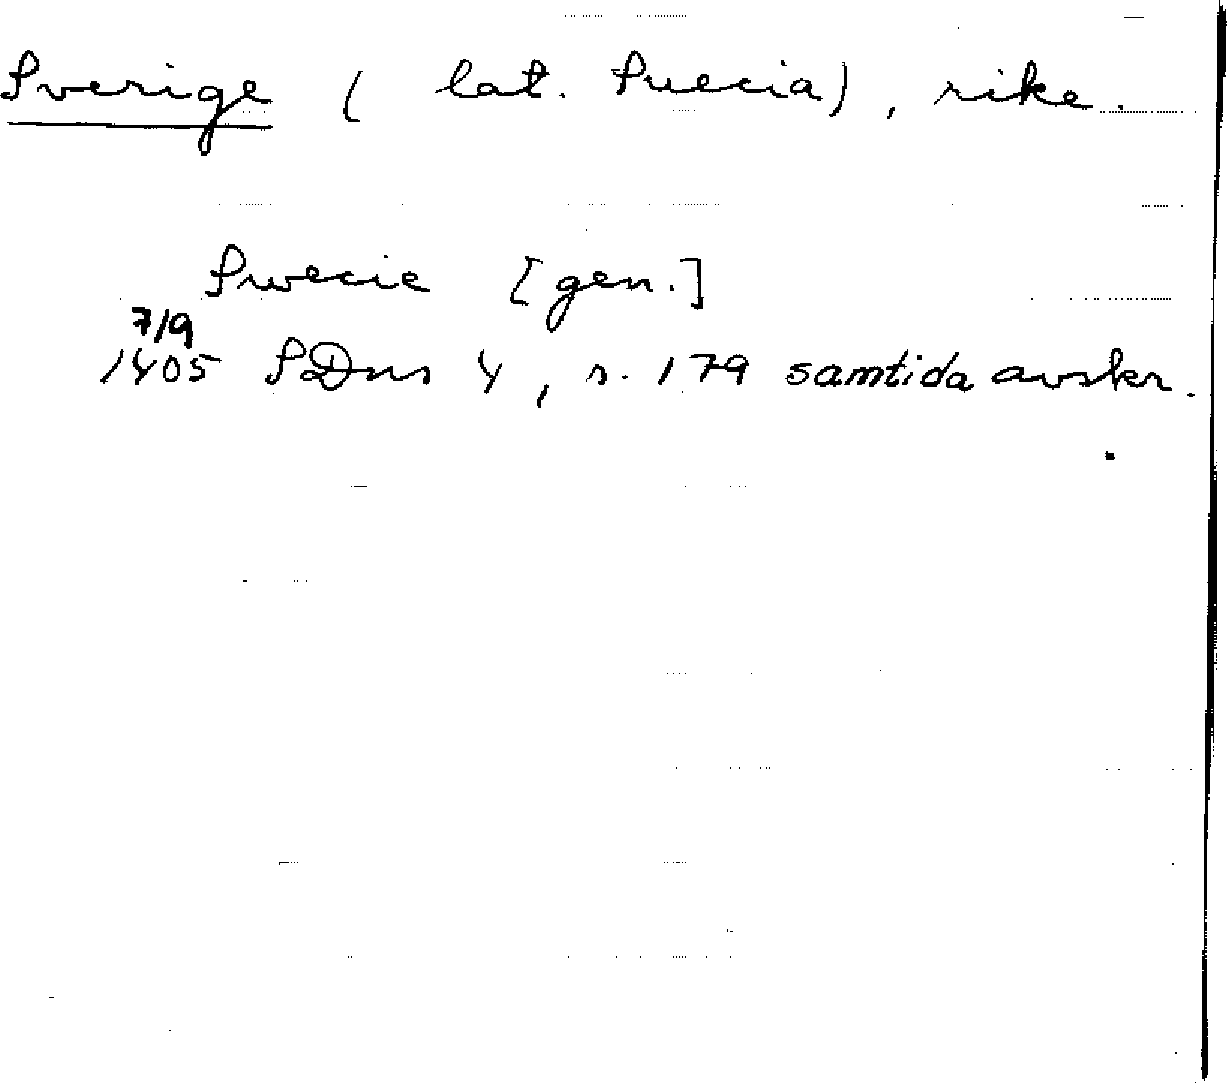 Sverige ( lat. Suecia), rike.
Swecie [gen.]
7/9
1405 SDns 4, s. 179 samtida avskr.